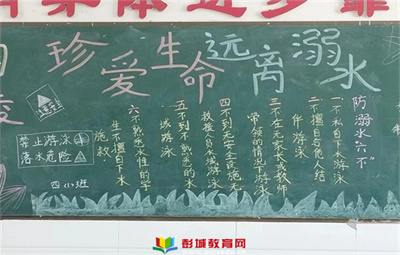 珍爱生命 远离溺水
防溺水"六不"
一不私自下水游泳
二不擅自与他人结
伴游泳
三不在无家长或教师
带领的情况下游泳
四不到无安全设施无
救援人员水域游泳
五不到不熟悉的水
域游泳
六不熟悉水性的学
生不擅自下水
施救
禁止游泳
溺水危险
四(1)班
彭城教育网